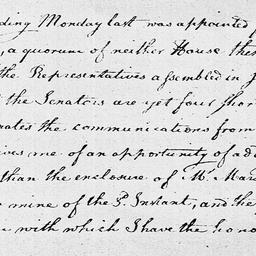 ding Monday last was appointed f
, a quorum of neither House the
the Representatives assembled in
t the Senators are yet four shor
rates the communications from
ives me of an opportunity of ad
than the enclosure of Mr. Mar
mine of the 1st. Instant, and the
with which I have the hono